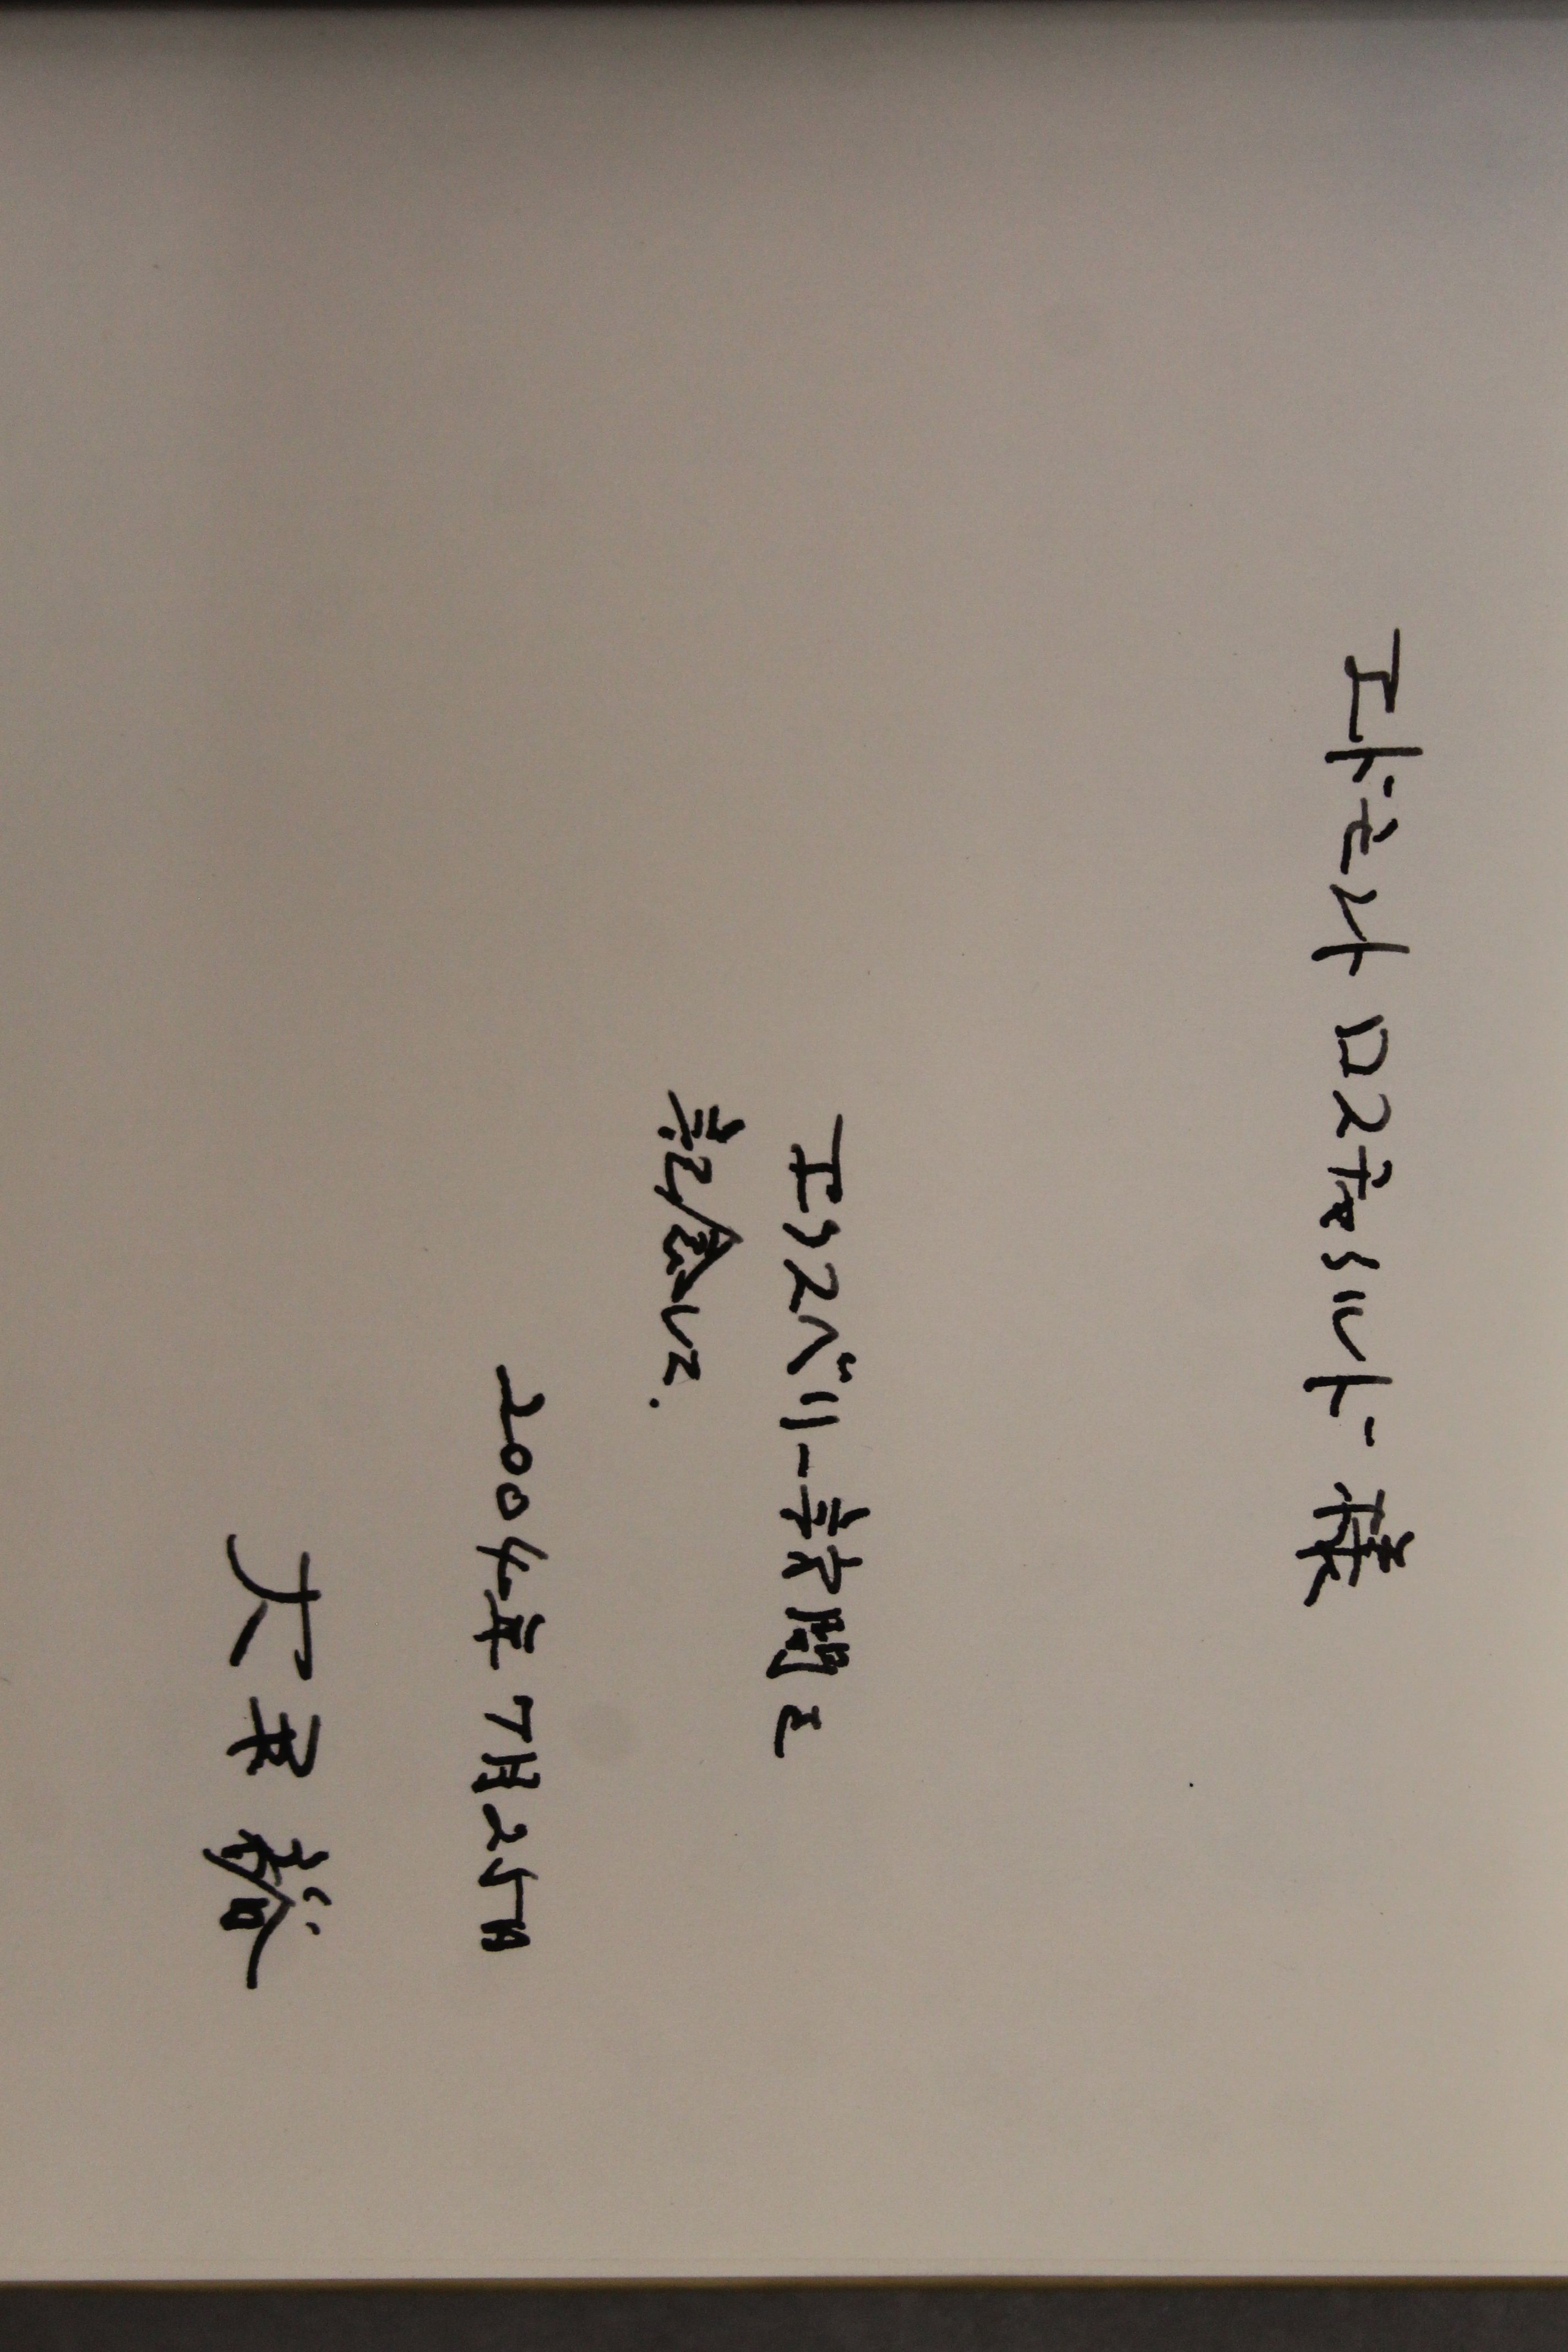 エドモンド ロスチャイルド 様
エクスベリー訪問を
記念して.
2004年7月25日